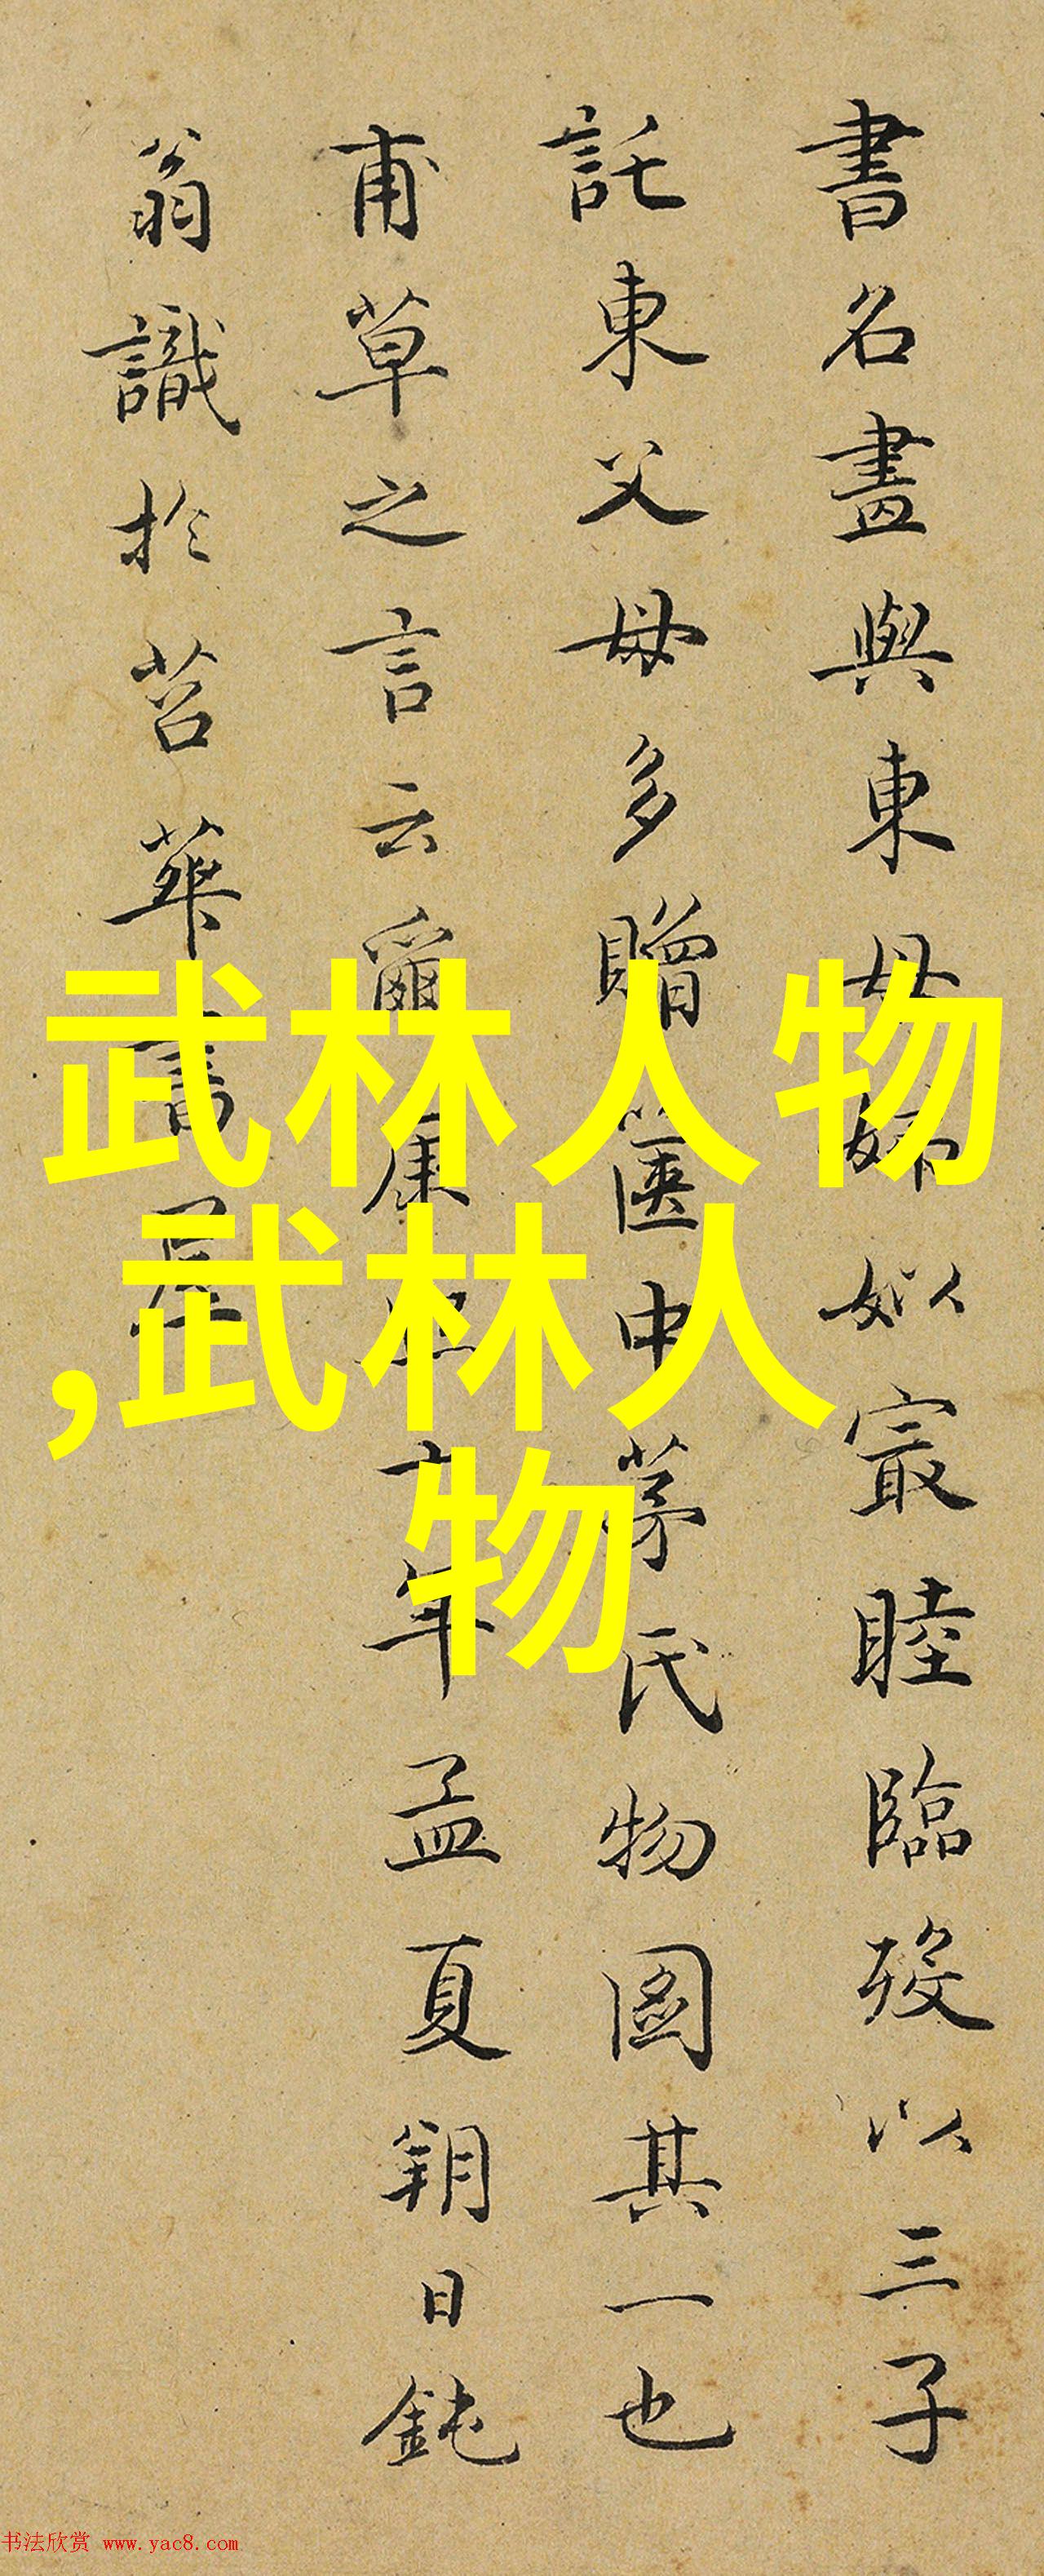 書名畫與東母婦姒宸睦臨歿以三子
託東父母多贈匧中茅氏物圖其一也
甫草之言云爾康熙六年孟夏朔日鈍
翁識於苕華書屋
武林人物
,武林人
物
书法欣赏 www.yac8.com